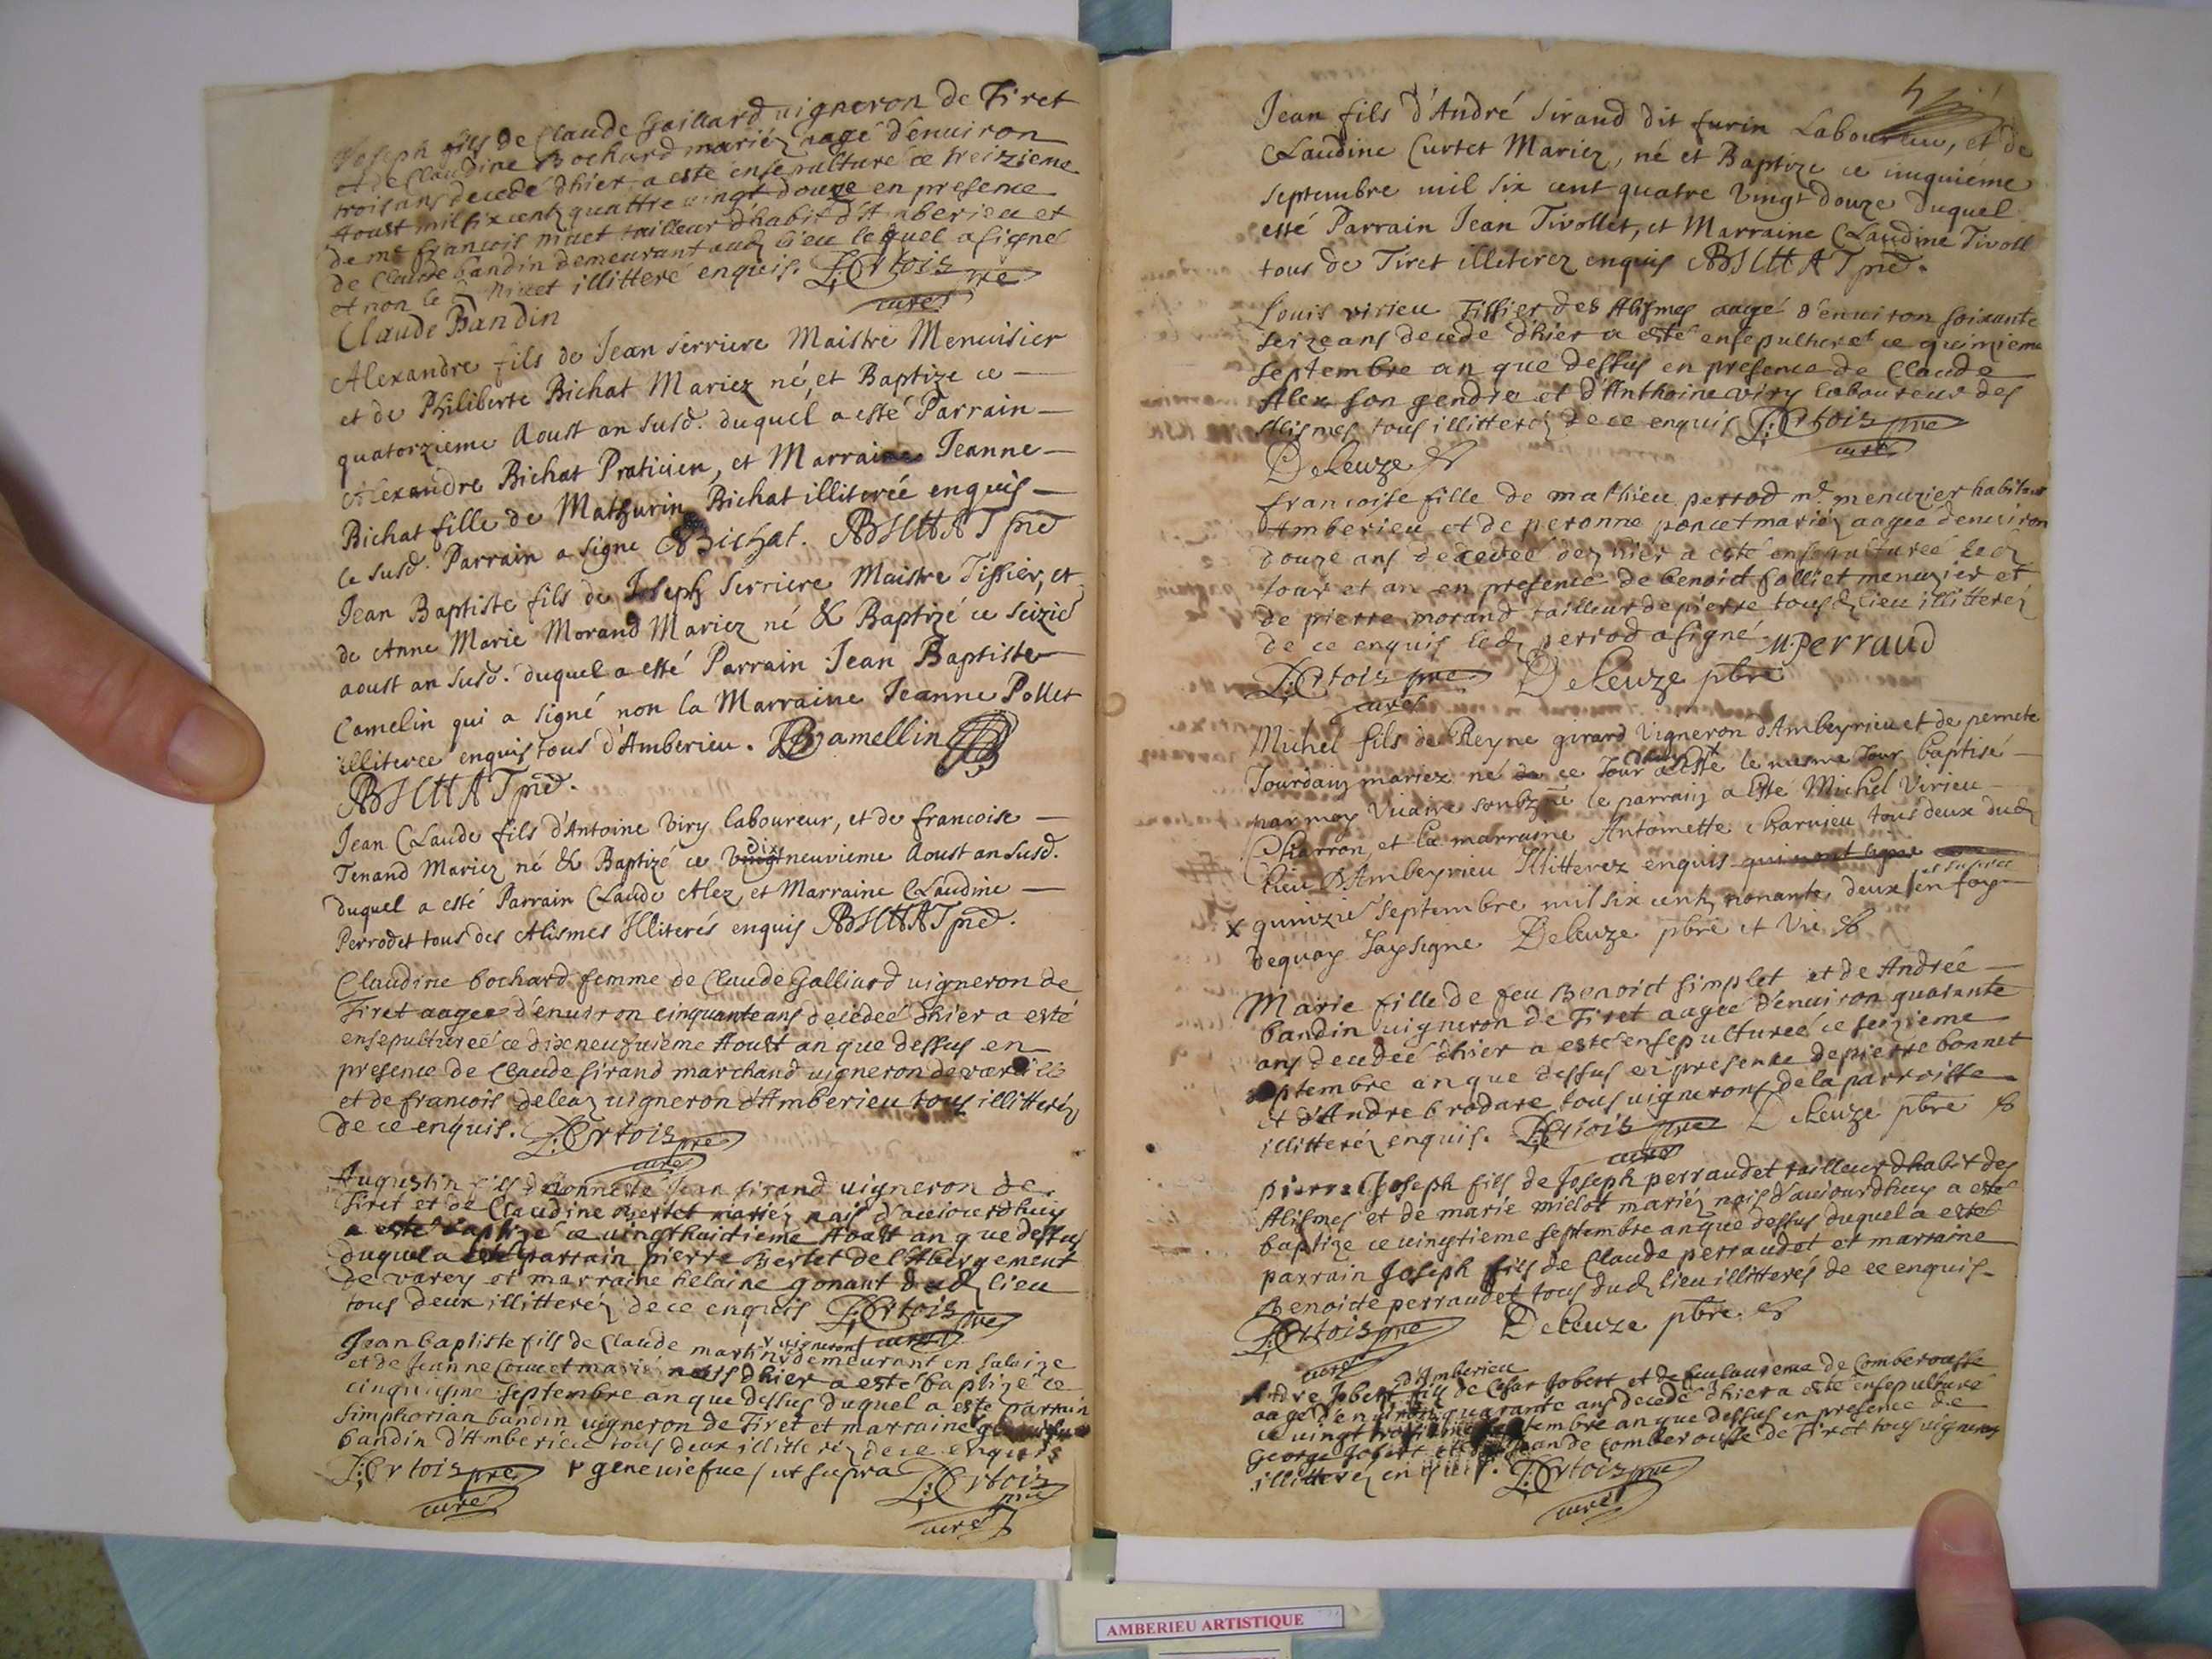 Joseph fils de Claude Gaillard vigneron de Tiret
et de Claudine Bochard mariéz aagé d'enuiron
trois ans decedé d'hier a esté ensepulturé ce treizieme
Aoust mil six centz quattre vingt douze en presence
de me francois niuet tailleur d'habit d'Amberieu et
de Claude bandin demeurant aud lieu lequel a signé
et non le d niuet illitteré enquis. pre
Claude Bandin curé
Alexandre fils de Jean Serriere Maistre Menuisier
et de Philiberte Bichat Mariez né, et Baptize ce
quatorzieme Aoust an susd. duquel a esté Parrain
Alexandre Bichat Praticien, et Marraine Jeanne
Bichat fille de Mathurin Bichat illiterée enquis
le susd. Parrain a signe ABichat. BICHAT
Jean Baptiste fils de Joseph Serriere Maistre Tissier, et
de Anne Marie Morand Mariez né & Baptizé ce seizie
aoust an susd. duquel a esté Parrain Jean Baptiste
Camelin qui a signé non la Marraine Jeanne Pollet
illiteree enquis tous d'Amberieu. JBCamellin
BICHAT
Jean Claude fils d'Antoine Viry laboureur, et de francoise
Tenand Mariez né & Baptizé ce vingt dix neuvieme Aoust an susd.
duquel a esté Parrain Claude Alez, et Marraine Claudine
Perrodet tous des Alismes Illiterés enquis BICHAT
Claudine bochard femme de Claude Galliard vigneron de
Tiret aagee d'enuiron cinquante ans decedeé d'hier a esté
ensepultureé ce dixneufuieme Aoust an que dessus en
presence de Claude sirand marchand vigneron de
et de francois deleaz vigneron d'Amberieu tous illitteréz
de ce enquis. pre
curé
Augustin fils d'honneste Jean sirand vigneron de
Tiret et de Claudine Bertet mariéz nais d'aujourdhuy
a esté baptizé ce vingthuictieme Aoust an que dessus
duquel a esté parrain pierre Bertet de l'Abergement
de varey et marraine helaine gonant dud lieu
tous deux illitteréz de ce enquis pre
curé
Jean baptiste fils de Claude martin vigneron demeurant en
et de Jeanne mariéz nais d'hier a esté baptizé ce
cinquiesme septembre an que dessus duquel a esté parrain
simphorian bandin vigneron de Tiret et marraine
bandin d'Amberieu tous deux illitteréz de ce enquis
pre geneuiefue / ut supra
curé pre
curé
Jean fils d'André Sirand dit furin Laboureur, et de
Claudine Curtet Mariez, né et Baptize ce cinquiéme
septembre mil six cent quatre vingt douze duquel
esté Parrain Jean Tivollet, et Marraine Claudine Tivoll
tous de Tiret illiterez enquis BICHAT
Louis virieu Tissier des Alismes aagé d'enuiron soixante
seize ans decede d'hier a esté ensepulturé ce quinzieme
septembre an que dessus en presence de Claude
Alex son gendre et d'Anthoine viry laboureur des
Alismes tous illitteréz de ce enquis pre
Deleuze curé
francoise fille de mathieu perrod me menuzier habitant
d'Amberieu et de peronne poncet mariéz aagee d'enuiron
douze ans decedeé dez hier a esté ensepultureé led
Jour et an en presence de benoict folliet menuzier et
de pierre morand tailleur de pierre tous d lieu illitteréz
de ce enquis led perrod a signé M.Perraud
pre Deleuze pbre
curé
Michel fils de Reyne girard Vigneron d'Ambeyrieu et de pernete
Jourdain mariez né ce Jour a esté le mesme Jour baptisé
par moy Vicaire soubzne le parrain a esté Michel Virieu
Charron, et la marraine Antoinette tous deux dud
lieu d'Ambeyrieu Illitterez enquis
x quinzie septembre mil six centz nonante, deux en foy
dequoy Jay signe Deleuze pbre et Vic
Marie fille de feu Benoict simplet et de Andrée
bandin vigneron de Tiret aagée d'enuiron quarante
ans decedeé d'hier a esté ensepultureé ce seizieme
septembre an que dessus en presence de pierre bonnet
et d'André brodare tous vignerons de la parroisse
illitteréz enquis. pre Deleuze pbre
curé
pierre Joseph fils de Joseph perraudet tailleur d'habit des
Alismes et de marie miclot mariéz nais d'aujourdhuy a esté
baptize ce vingtieme septembre an que dessus duquel a esté
parrain Joseph fils de Claude perraudet et marraine
Benoicte perraudet tous dud lieu illitterés de ce enquis
pre Deleuze pbre
curé d'Amberieu
André Jobert fils de Cesar Jobert et de feu laurence de Comberousse
aagé d'enuiron quarante ans decedé d'hier a esté ensepulturé
ce vingt septembre an que dessus en presence de
George Jobert et de Jean de Comberousse de Tiret tous vignerons
illitteréz enquis. pre
curé
AMBERIEU ARTISTIQUE